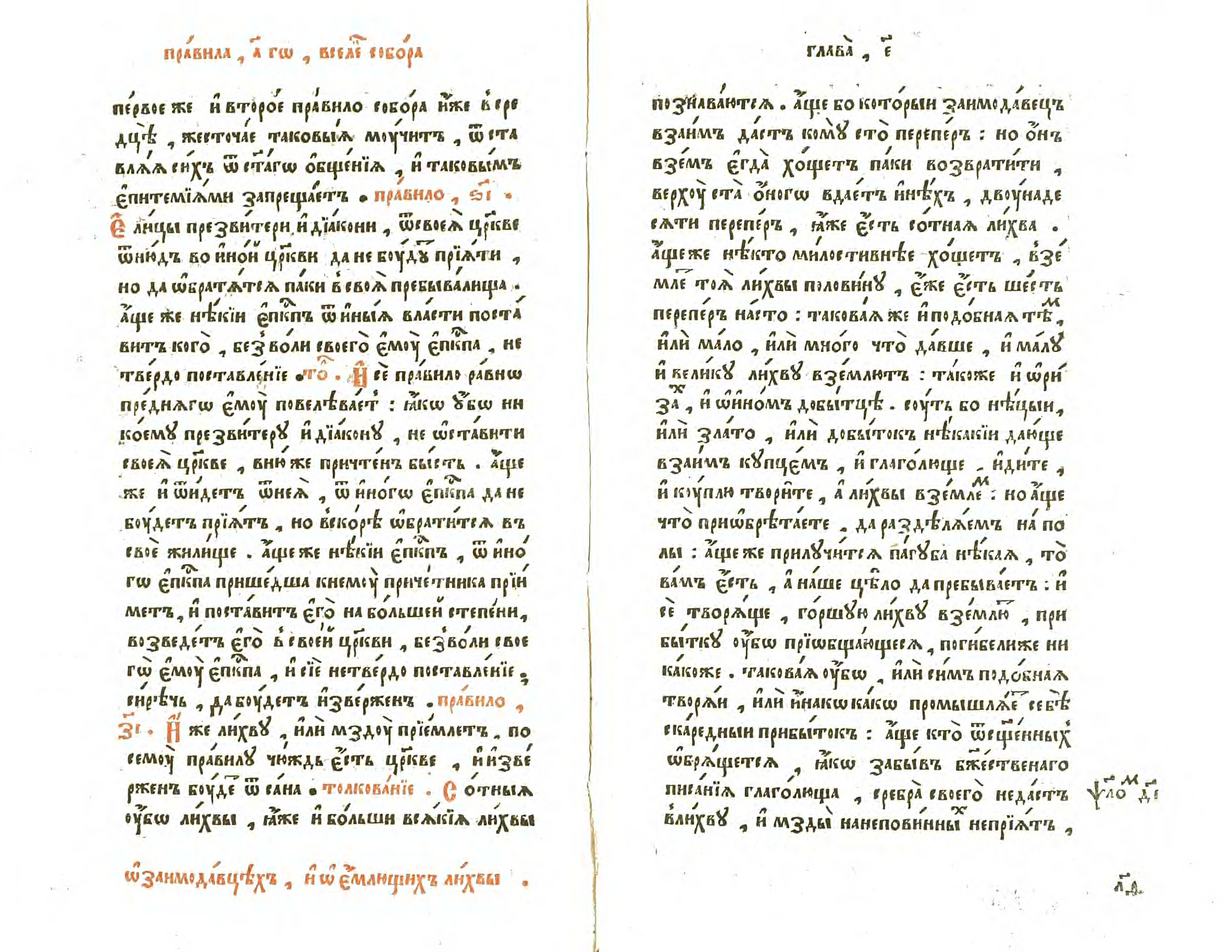 пра́вила , а҃ гѡ , вселе́ собо́ра
пе́рвое же и҆ второ́е пра́вило собо́ра и҆́же в̾сре
дцѣ̀ , жесточа́е таковы́ѧ моу́читъ , ѿста
влѧ́ѧ си́хъ ѿ ст҃а́гѡ ѻ҆бще́нїѧ , и҆ таковы́мъ
є҆питемїѧ́ми запреща́етъ . пра́вило , ѕ҃і .
Є҆ ли́цы презви́тери и҆ дїа́кони , ѿ своеѧ̀ цр҃кве
ѿню́дъ во и҆но́й цр҃кви да не боу́дꙋ прїѧ́ти ,
но да ѡ҆братѧ́тсѧ па́ки в̾своѧ̀ пребыва́лища .
а҆́ще же нѣ́кїи є҆пк҃пъ ѿ и҆ны́ѧ вла́сти поста́
витъ кого̀ , без̾ во́ли своего̀ є҆моу̀ є҆пк҃па , не
тве́рдо поставле́нїе . то̑ . И҆ сѐ пра́вило ра́внѡ
пре́днѧгѡ є҆моу̀ повелѣва́ет : ꙗ҆́кѡ ᲂу҆́бѡ ни
кое́мꙋ презви́терꙋ и҆ дїа́конꙋ , не ѡ҆ста́вити
своеѧ̀ цр҃кве , в ню́ же причте́нъ бы́сть . а҆́ще
же и҆ ѿи́детъ ѿ неѧ̀ , ѿ и҆но́гѡ є҆пк҃па да не
боу́детъ прїѧ́тъ , но в̾ско́рѣ ѡ҆брати́тсѧ въ
своѐ жили́ще . а҆́ще же нѣ́кїи є҆пк҃пъ , ѿ и҆но́
гѡ є҆пк҃па прише́дша к немоу̀ приче́тника прїи́
метъ , и҆ поста́витъ є҆го̀ на бо́льшей степе́ни ,
возведе́тъ є҆го̀ в̾ свое́й цр҃кви , без̾ во́ли свое
гѡ̀ є҆моу̀ є҆пк҃па , и҆ сїѐ нетве́рдо поставле́нїе ,
си́рѣчь , да боу́детъ и҆зве́рженъ . пра́вило ,
з҃і . И҆́ же ли́хвꙋ , и҆лѝ мздоу̀ прїе́млетъ , по
семоу̀ пра́вилꙋ чю́ждь є҆́сть цр҃кве , и҆ и҆зве́
рженъ боу́де ѿ са́на . толкова́нїе . С о́тныѧ
ᲂу҆́бѡ ли́хвы , ꙗ҆́же и҆ бо́льши всѧ́кїѧ ли́хвы
ѡ҆ заимода́вцѣхъ , и҆ ѡ҆ є҆́млющихъ ли́хвы .
глава̀ , є҃
познава́ютсѧ . а҆́ще бо кото́рыи заимода́вецъ
взаи́мъ да́стъ комꙋ̀ сто̀ перепе́ръ : но ѻ҆́нъ
взе́мъ є҆гда̀ хо́щетъ па́ки возврати́ти ,
верхоу̀ ста̀ ѻ҆́ногѡ вдае́тъ и҆нѣ́хъ , двоуна́де
сѧти перепе́ръ , ꙗ҆́же є҆́сть со́тнаѧ ли́хва .
а҆́ще же нѣ́кто ми́лостивнѣе хо́щетъ , взе́
мле тоѧ̀ ли́хвы полови́нꙋ , є҆́же є҆́сть ше́сть
перепе́ръ на́сто : такова́ѧ же и҆ подо́бнаѧ тѣ́м ,
и҆лѝ ма́ло , и҆лѝ мно́го что̀ да́вше , и҆ ма́лꙋ
и҆ вели́кꙋ ли́хвꙋ взе́млютъ : та́коже и҆ ѡ҆ ри́
за́х , и҆ ѡ҆ и҆но́мъ добы́тцѣ . соу́ть бо нѣ́цыи ,
и҆лѝ зла́то , и҆лѝ добы́токъ нѣ́какїи даю́ще
взаи́мъ кꙋпце́мъ , и҆ глаго́люще , и҆ди́те ,
и҆ коу́плю твори́те , а҆ ли́хвы взе́мле́м : но а҆́ще
что̀ приѡбрѣ́таете , да раздѣлѧ́емъ на́ по
лы : а҆́ще же прилꙋчи́тсѧ па́гꙋба нѣ́каѧ , то̀
ва́мъ є҆́сть , а҆ на́ше цѣ́ло да пребыва́етъ : и҆
сѐ творѧ́ще , го́ршꙋю ли́хвꙋ взе́млю , при
бы́ткꙋ ᲂу҆́бѡ прїѡбща́ющесѧ , поги́бели же ни
ка́коже . такова́ѧ ᲂу҆́бѡ , и҆лѝ си́мъ подо́бнаѧ
творѧ́и , и҆лѝ и҆на́кѡ ка́кѡ промышлѧ́е себѣ̀
скаре́дныи прибы́токъ : а҆́ще кто̀ ѿ сщ҃е́нных
ѡ҆брѧ́щетсѧ , ꙗ҆́кѡ забы́въ бж҃е́ственаго
писа́нїѧ глаго́люща , сребра̀ своего̀ неда́стъ
в̾ли́хвꙋ , и҆ мзды̀ на непови́нны́х непрїѧ́тъ ,
ѱало́м д҃і
л҃ѳ.